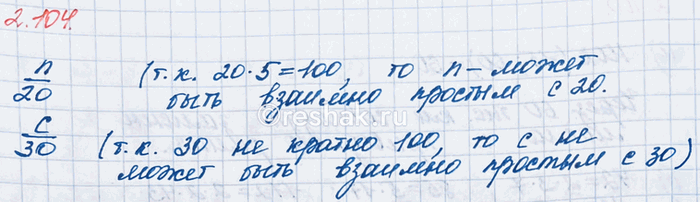 2.104.
n/20 (т.к. 20·5=100, то n - может
быть взаимно простым с 20.
©reshak.ru
c/30 (т.к. 30 не кратно 100, то с не
может быть взаимно простым с 30)